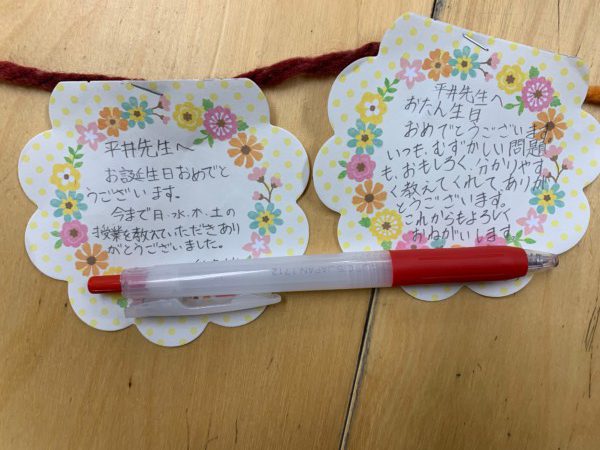 平井先生へ
お誕生日おめでと
うございます。
今まで日、水、木、土の
授業を教えていただきあり
がとうございました。
平井先生へ
おたん生日
おめでとうございます。
いつも、むずかしい問題
も、おもしろく、分かりやす
く教えてくれて、ありが
とうございます。
これからもよろしく
おねがいします。
JAPAN 1712